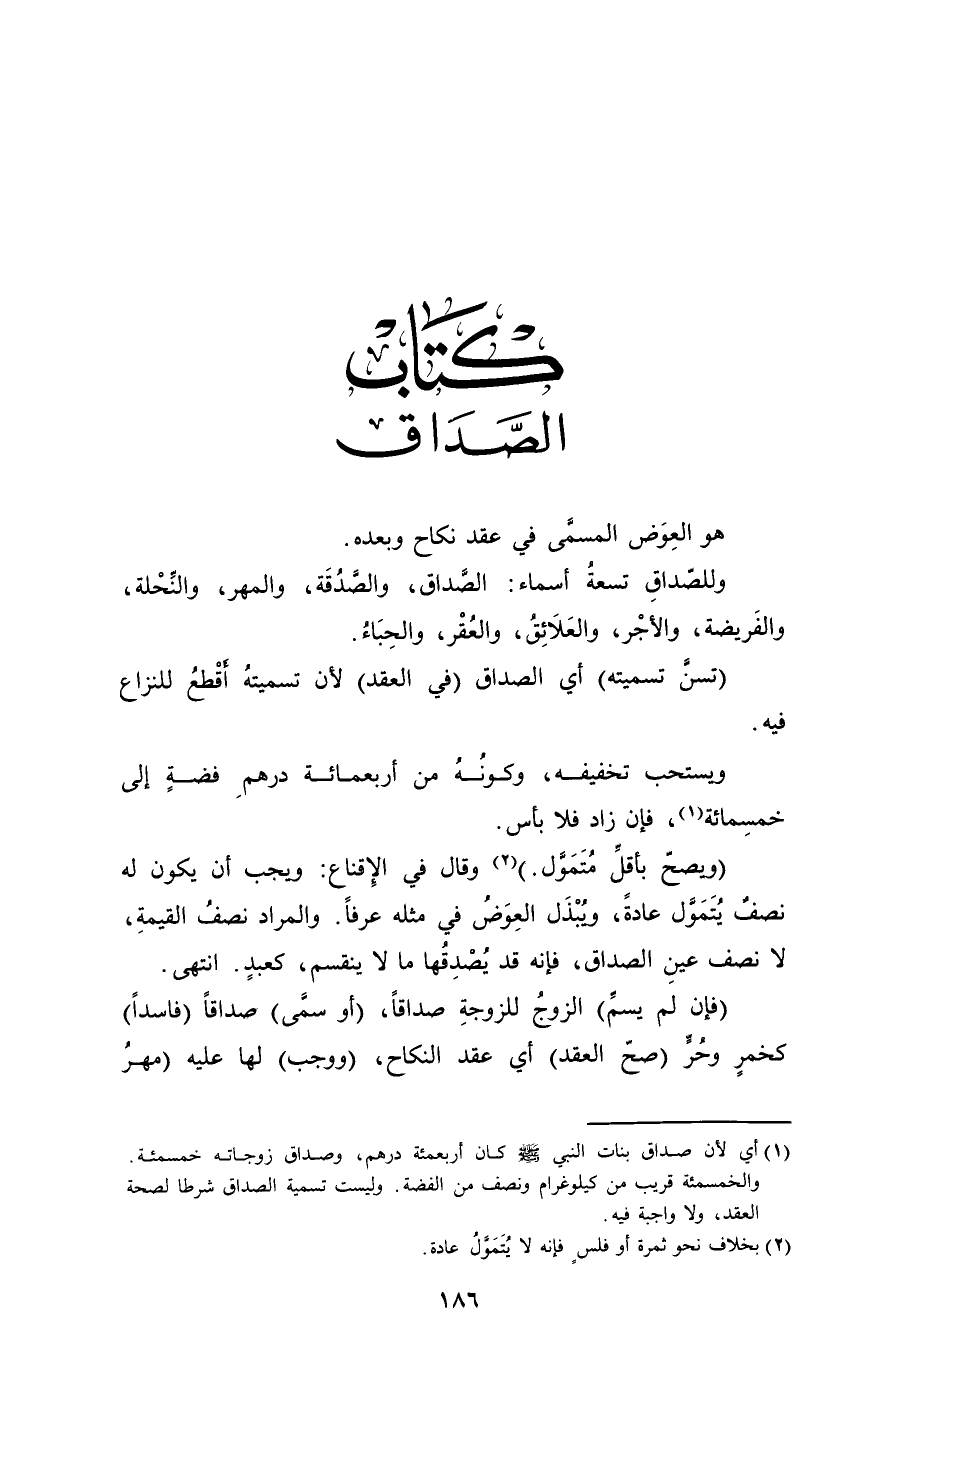 كِتَاب
الصَّدَاق
هو العِوَض المسمَّى في عقد نكاح وبعده.
وللصّداقِ تسعةُ أسماء: الصَّداق، والصَّدُقَة، والمهر، والنِّحْلة،
والفَريضة، والأجْر، والعَلَائِقُ، والعُقْر، والحِبَاءُ.
(تسنَّ تسميته) أي الصداق (في العقد) لأن تسميتهُ أَقْطعُ للنزاع
فيه.
ويستحب تخفيفه، وكونُهُ من أربعمائة درهمِ فضةٍ إلى
خمسِمائة(١)، فإن زاد فلا بأس.
(ويصحّ بأقلِّ مُتَمَوَّل.)(٢) وقال في الإقناع: ويجب أن يكون له
نصفٌ يُتَمَوَّل عادةً، ويُبْذَل العِوَضُ في مثله عرفاً. والمراد نصفُ القيمةِ،
لا نصف عينِ الصداق، فإنه قد يُصْدِقُها ما لا ينقسم، كعبدٍ. انتهى.
(فإن لم يسمِّ) الزوجُ للزوجةِ صداقاً، (أو سمَّى) صداقاً (فاسداً)
كخمرٍ وحُرٍّ (صحّ العقد) أي عقد النكاح، (ووجب) لها عليه (مهرُ
(١) أي لأن صداق بنات النبي ﷺ كان أربعمئة درهم، وصداق زوجاته خمسمئة.
والخمسمئة قريب من كيلوغرام ونصف من الفضة. وليست تسمية الصداق شرطا لصحة
العقد، ولا واجبة فيه.
(٢) بخلاف نحو ثمرة أو فلسٍ فإنه لا يُتَمَوَّلُ عادة.
١٨٦